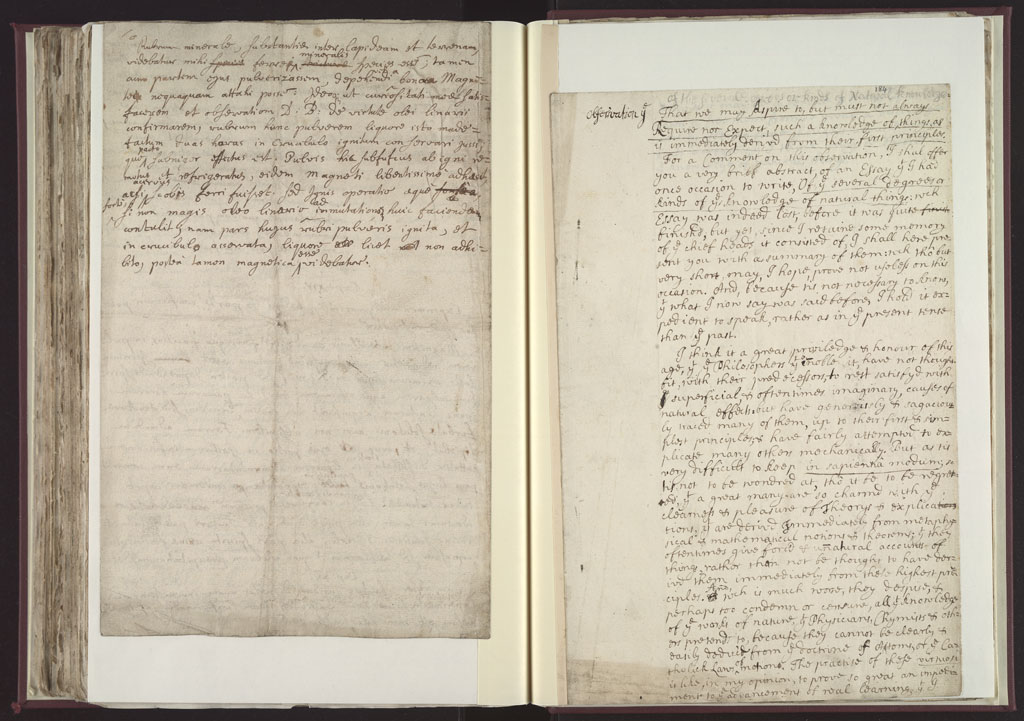 Rubrum minerale, substantiæ inter lapideam et terrenam
videbatur mihi species ferreæ mineralis species esse, tamen
cum partem ejus pulverizassem, deprehendi bonam Magne-
tem nequaquam attolli posse.
factum et observation D. D. de virtute olei linaris
confirmarem, rubrum hunc pulverem liquore isto made-
factum duas horas in Crucibulo ignitum conservari jussi,
quo facto effectus est. Pulvis hic ab igni re-
motus et refrigeratus, eidem magneti libentissime adhæsit
ac si scobs ferri fuisset: sed Ignis operatio æque
forte si non magis oleo lineario ad immutationem huic faciendam
contulit, nam pars hujus rubri pulveris ignita, et
in crucibulo asservata, liquore licet non adhi-
bito, postea tamen magnetica esse videbatur.
184
of the Degrees or kinds of Natural Knowledge.
Observation yͤ
That we may Aspire to, but must not always
Require nor Expect, such a knowledge of things, as
is immediately deriv'd from their first principles.
For a Comment on this observation, I shal offer
you a very brief abstract, of an Essay yᵗ I had
once occasion to write, Of yͤ several degrees or
kinds of yͤ knowledge of natural things: wch
Essay was indeed lost, before it was quite
finish'd, but yet, since I retaine some memory
of yͤ chief heads it consisted of, I shall here pre-
sent you with a summary of them: wch tho but
very short, may, I hope, prove not useless on this
occasion. And, because tis not necessary to know,
yᵗ what I now say was said before, I hold it ex-
pedient to speak, rather as in yͤ present tense
than yͤ past.
I think it a great priviledge & honour of this
age, yᵗ yͤ Philosophers yᵗ enoble it, have not thought
fit, with their predecessors, to rest satisfyd with
superficial, & oftentimes imaginary, causes of
natural effects: but have generously & sagacious-
ly traced many of them, up to their first & sim-
plest principles; & have fairly attempted to ex-
plicate many others mechanically. But as tis
very difficult to keep in sapientia modum; so
tis not to be wondred at, tho it be to be regret-
ed, yᵗ a great many are so charm'd with yͤ
clearness & pleasure of Theorys & explica-
tions, yᵗ are deriv'd immediately from metaphy-
sical & mathematical notions & theorems; yᵗ they
oftentimes give forc'd & unnatural accounts of
things, rather then not be thought to have deri-
ved them immediately from these highest prin-
ciples. And wch is much worse, they despise, &
perhaps too condemn or censure, all yͤ knowledge
of yͤ works of nature, yᵗ Physicians, Chymists & oth-
ers pretend to, because they cannot be clearly &
easily deduc'd from yͤ doctrine of Attoms, or yͤ Ca-
tholick Laws of motion. The practise of these virtuosi
is like, in my opinion, to prove so great an impedi-
ment to yͤ advancement of real learning, yᵗ I